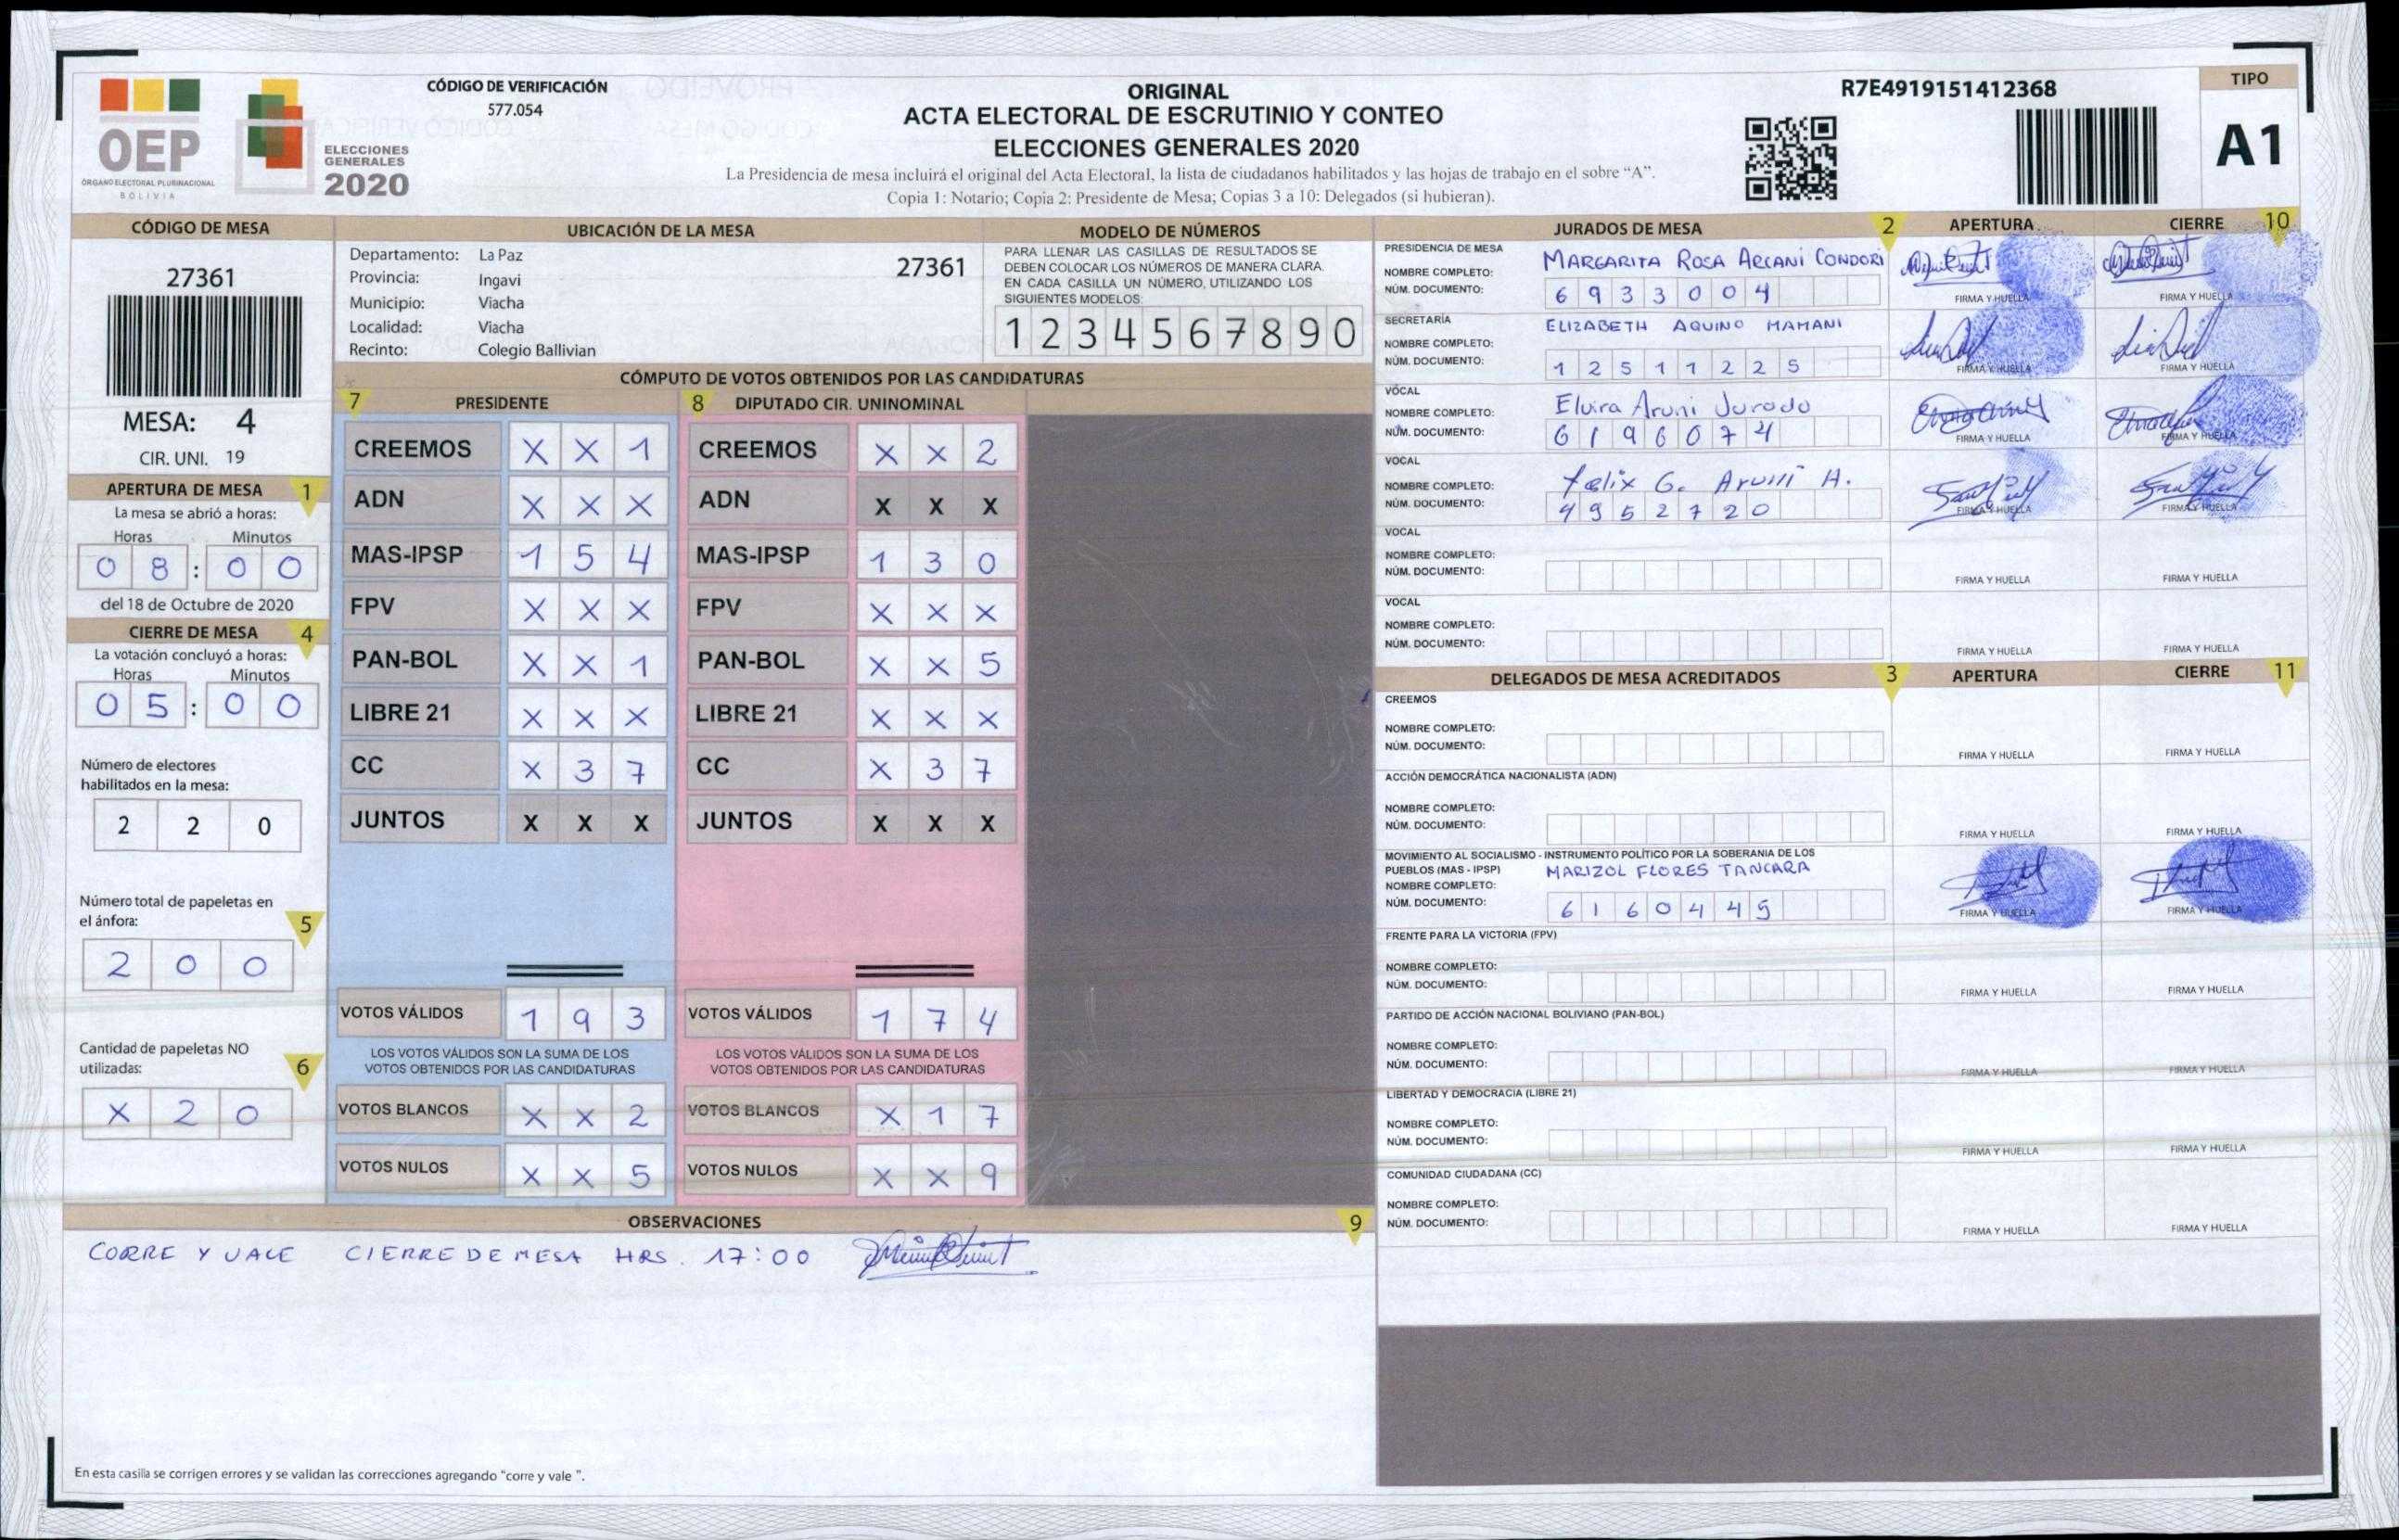 OEP
ÓRGANO ELECTORAL PLURINACIONAL
BOLIVIA
ELECCIONES
GENERALES
2020
CÓDIGO DE VERIFICACIÓN
577.054
ORIGINAL
ACTA ELECTORAL DE ESCRUTINIO Y CONTEO
ELECCIONES GENERALES 2020
La Presidencia de mesa incluirá el original del Acta Electoral, la lista de ciudadanos habilitados y las hojas de trabajo en el sobre “A”.
Copia 1: Notario; Copia 2: Presidente de Mesa; Copias 3 a 10: Delegados (si hubieran).
R7E4919151412368
TIPO
A1
CÓDIGO DE MESA
27361
MESA: 4
CIR. UNI. 19
APERTURA DE MESA 1
La mesa se abrió a horas:
Horas Minutos
0 8 : 0 0
del 18 de Octubre de 2020
CIERRE DE MESA 4
La votación concluyó a horas:
Horas Minutos
0 5 : 0 0
Número de electores
habilitados en la mesa:
2 2 0
Número total de papeletas en
el ánfora: 5
2 0 0
Cantidad de papeletas NO
utilizadas: 6
X 2 0
UBICACIÓN DE LA MESA
Departamento: La Paz
27361
Provincia: Ingavi
Municipio: Viacha
Localidad: Viacha
Recinto: Colegio Ballivian
MODELO DE NÚMEROS
PARA LLENAR LAS CASILLAS DE RESULTADOS SE
DEBEN COLOCAR LOS NÚMEROS DE MANERA CLARA.
EN CADA CASILLA UN NÚMERO, UTILIZANDO LOS
SIGUIENTES MODELOS:
1 2 3 4 5 6 7 8 9 0
CÓMPUTO DE VOTOS OBTENIDOS POR LAS CANDIDATURAS
7 PRESIDENTE 8 DIPUTADO CIR. UNINOMINAL
CREEMOS X X 1 CREEMOS X X 2
ADN X X X ADN X X X
MAS-IPSP 1 5 4 MAS-IPSP 1 3 0
FPV X X X FPV X X X
PAN-BOL X X 1 PAN-BOL X X 5
LIBRE 21 X X X LIBRE 21 X X X
CC X 3 7 CC X 3 7
JUNTOS X X X JUNTOS X X X
VOTOS VÁLIDOS 1 9 3 VOTOS VÁLIDOS 1 7 4
LOS VOTOS VÁLIDOS SON LA SUMA DE LOS LOS VOTOS VÁLIDOS SON LA SUMA DE LOS
VOTOS OBTENIDOS POR LAS CANDIDATURAS VOTOS OBTENIDOS POR LAS CANDIDATURAS
VOTOS BLANCOS X X 2 VOTOS BLANCOS X 1 7
VOTOS NULOS X X 5 VOTOS NULOS X X 9
OBSERVACIONES 9
CORRE Y VALE CIERRE DE MESA HRS. 17:00
En esta casilla se corrigen errores y se validan las correcciones agregando "corre y vale ".
JURADOS DE MESA 2 APERTURA CIERRE 10
PRESIDENCIA DE MESA
NOMBRE COMPLETO: MARGARITA ROSA ARCANI CONDORI
NÚM. DOCUMENTO: 6 9 3 3 0 0 4
FIRMA Y HUELLA FIRMA Y HUELLA
SECRETARÍA
NOMBRE COMPLETO: ELIZABETH AQUINO MAMANI
NÚM. DOCUMENTO: 1 2 5 1 1 2 2 5
FIRMA Y HUELLA FIRMA Y HUELLA
VOCAL
NOMBRE COMPLETO: Elvira Aruni Jurado
NÚM. DOCUMENTO: 6 1 9 6 0 7 4
FIRMA Y HUELLA FIRMA Y HUELLA
VOCAL
NOMBRE COMPLETO: Felix G. Aruni H.
NÚM. DOCUMENTO: 4 9 5 2 7 2 0
FIRMA Y HUELLA FIRMA Y HUELLA
VOCAL
NOMBRE COMPLETO:
NÚM. DOCUMENTO:
FIRMA Y HUELLA FIRMA Y HUELLA
VOCAL
NOMBRE COMPLETO:
NÚM. DOCUMENTO:
FIRMA Y HUELLA FIRMA Y HUELLA
DELEGADOS DE MESA ACREDITADOS 3 APERTURA CIERRE 11
CREEMOS
NOMBRE COMPLETO:
NÚM. DOCUMENTO:
FIRMA Y HUELLA FIRMA Y HUELLA
ACCIÓN DEMOCRÁTICA NACIONALISTA (ADN)
NOMBRE COMPLETO:
NÚM. DOCUMENTO:
FIRMA Y HUELLA FIRMA Y HUELLA
MOVIMIENTO AL SOCIALISMO - INSTRUMENTO POLÍTICO POR LA SOBERANIA DE LOS
PUEBLOS (MAS - IPSP) MARIZOL FLORES TANCARA
NOMBRE COMPLETO:
NÚM. DOCUMENTO: 6 1 6 0 4 4 5
FIRMA Y HUELLA FIRMA Y HUELLA
FRENTE PARA LA VICTORIA (FPV)
NOMBRE COMPLETO:
NÚM. DOCUMENTO:
FIRMA Y HUELLA FIRMA Y HUELLA
PARTIDO DE ACCIÓN NACIONAL BOLIVIANO (PAN-BOL)
NOMBRE COMPLETO:
NÚM. DOCUMENTO:
FIRMA Y HUELLA FIRMA Y HUELLA
LIBERTAD Y DEMOCRACIA (LIBRE 21)
NOMBRE COMPLETO:
NÚM. DOCUMENTO:
FIRMA Y HUELLA FIRMA Y HUELLA
COMUNIDAD CIUDADANA (CC)
NOMBRE COMPLETO:
NÚM. DOCUMENTO:
FIRMA Y HUELLA FIRMA Y HUELLA